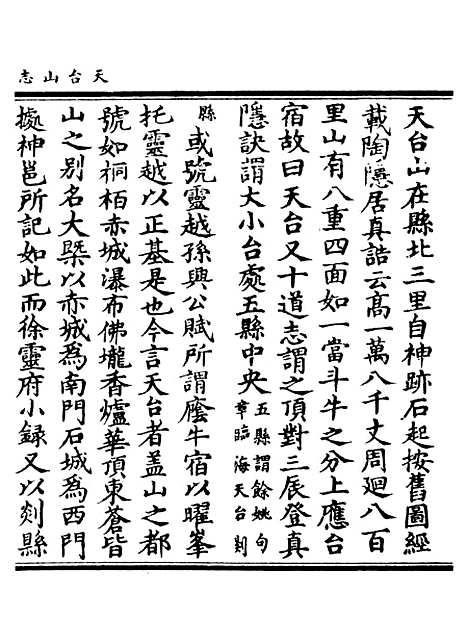 天台山志
天台山在縣北三里自神跡石起按舊圖經
載陶隱居真誥云高一萬八千丈周廻八百
里山有八重四面如一當斗牛之分上應台
宿故曰天台又十道志謂之頂對三辰登真
隱訣謂大小台處五縣中央五縣謂餘姚句章臨海天台剡
縣或號靈越孫興公賦所謂廕牛宿以曜峯
托靈越以正基是也今言天台者盖山之都
號如桐栢赤城瀑布佛壠香爐華頂東蒼皆
山之別名大槩以赤城為南門石城為西門
據神邕所記如此而徐靈府小録又以剡縣